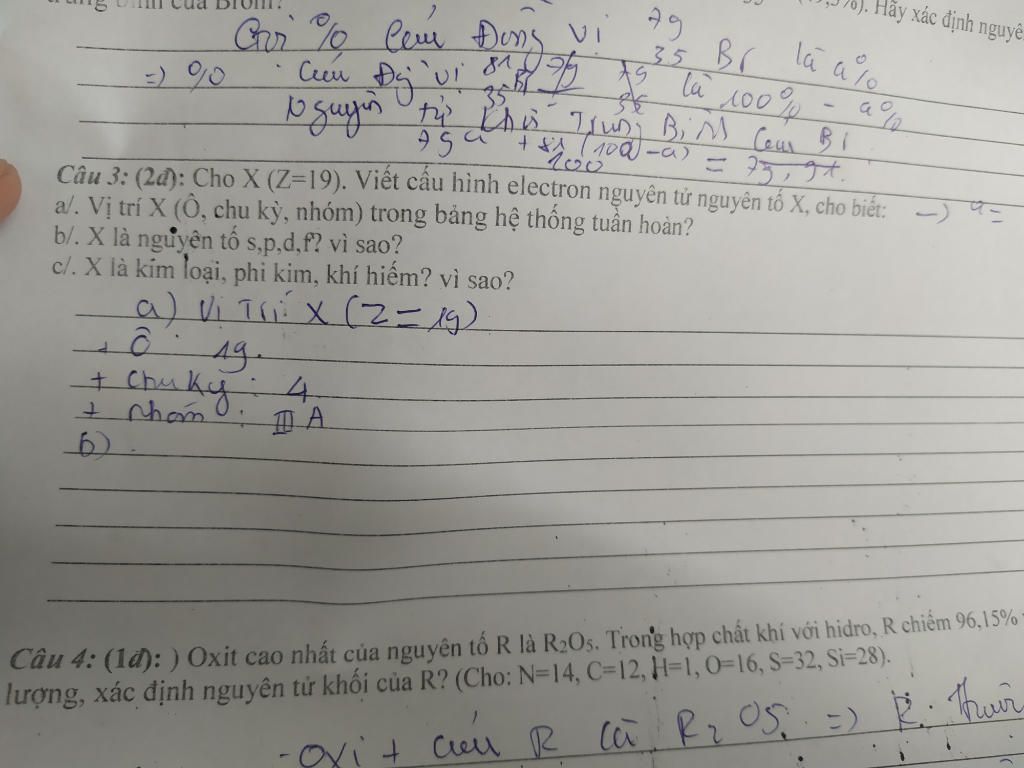 trung bình của Brom?
%). Hãy xác định nguyê
Gọi % của Đồng vị 79 35 Br là a%
=> % của Đồng vị 81 35 Br là 100% - a%
Nguyên tử khối Trung Bình của Br
79a + 81 (100 - a) 100 = 79,91.
Câu 3: (2đ): Cho X (Z=19). Viết cấu hình electron nguyên tử nguyên tố X, cho biết: -> a =
a/. Vị trí X (Ô, chu kỳ, nhóm) trong bảng hệ thống tuần hoàn?
b/. X là nguyên tố s,p,d,f? vì sao?
c/. X là kim loại, phi kim, khí hiếm? vì sao?
a) Vị Trí X (Z = 19)
+ Ô : 19.
+ Chu Kỳ : 4
+ Nhóm : III A
b)
Câu 4: (1đ): ) Oxit cao nhất của nguyên tố R là R₂O₅. Trong hợp chất khí với hidro, R chiếm 96,15%
lượng, xác định nguyên tử khối của R? (Cho: N=14, C=12, H=1, O=16, S=32, Si=28).
- Oxi + của R là R₂ O5. => R. Thuộc